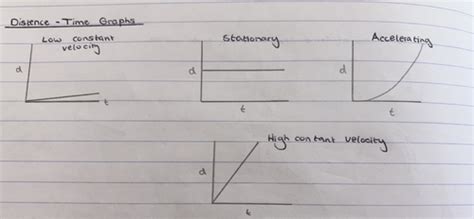 Distence - Time Graphs
Low constant
velocity
Stationary
Accelerating
d
t
d
t
d
t
High constant velocity
d
t